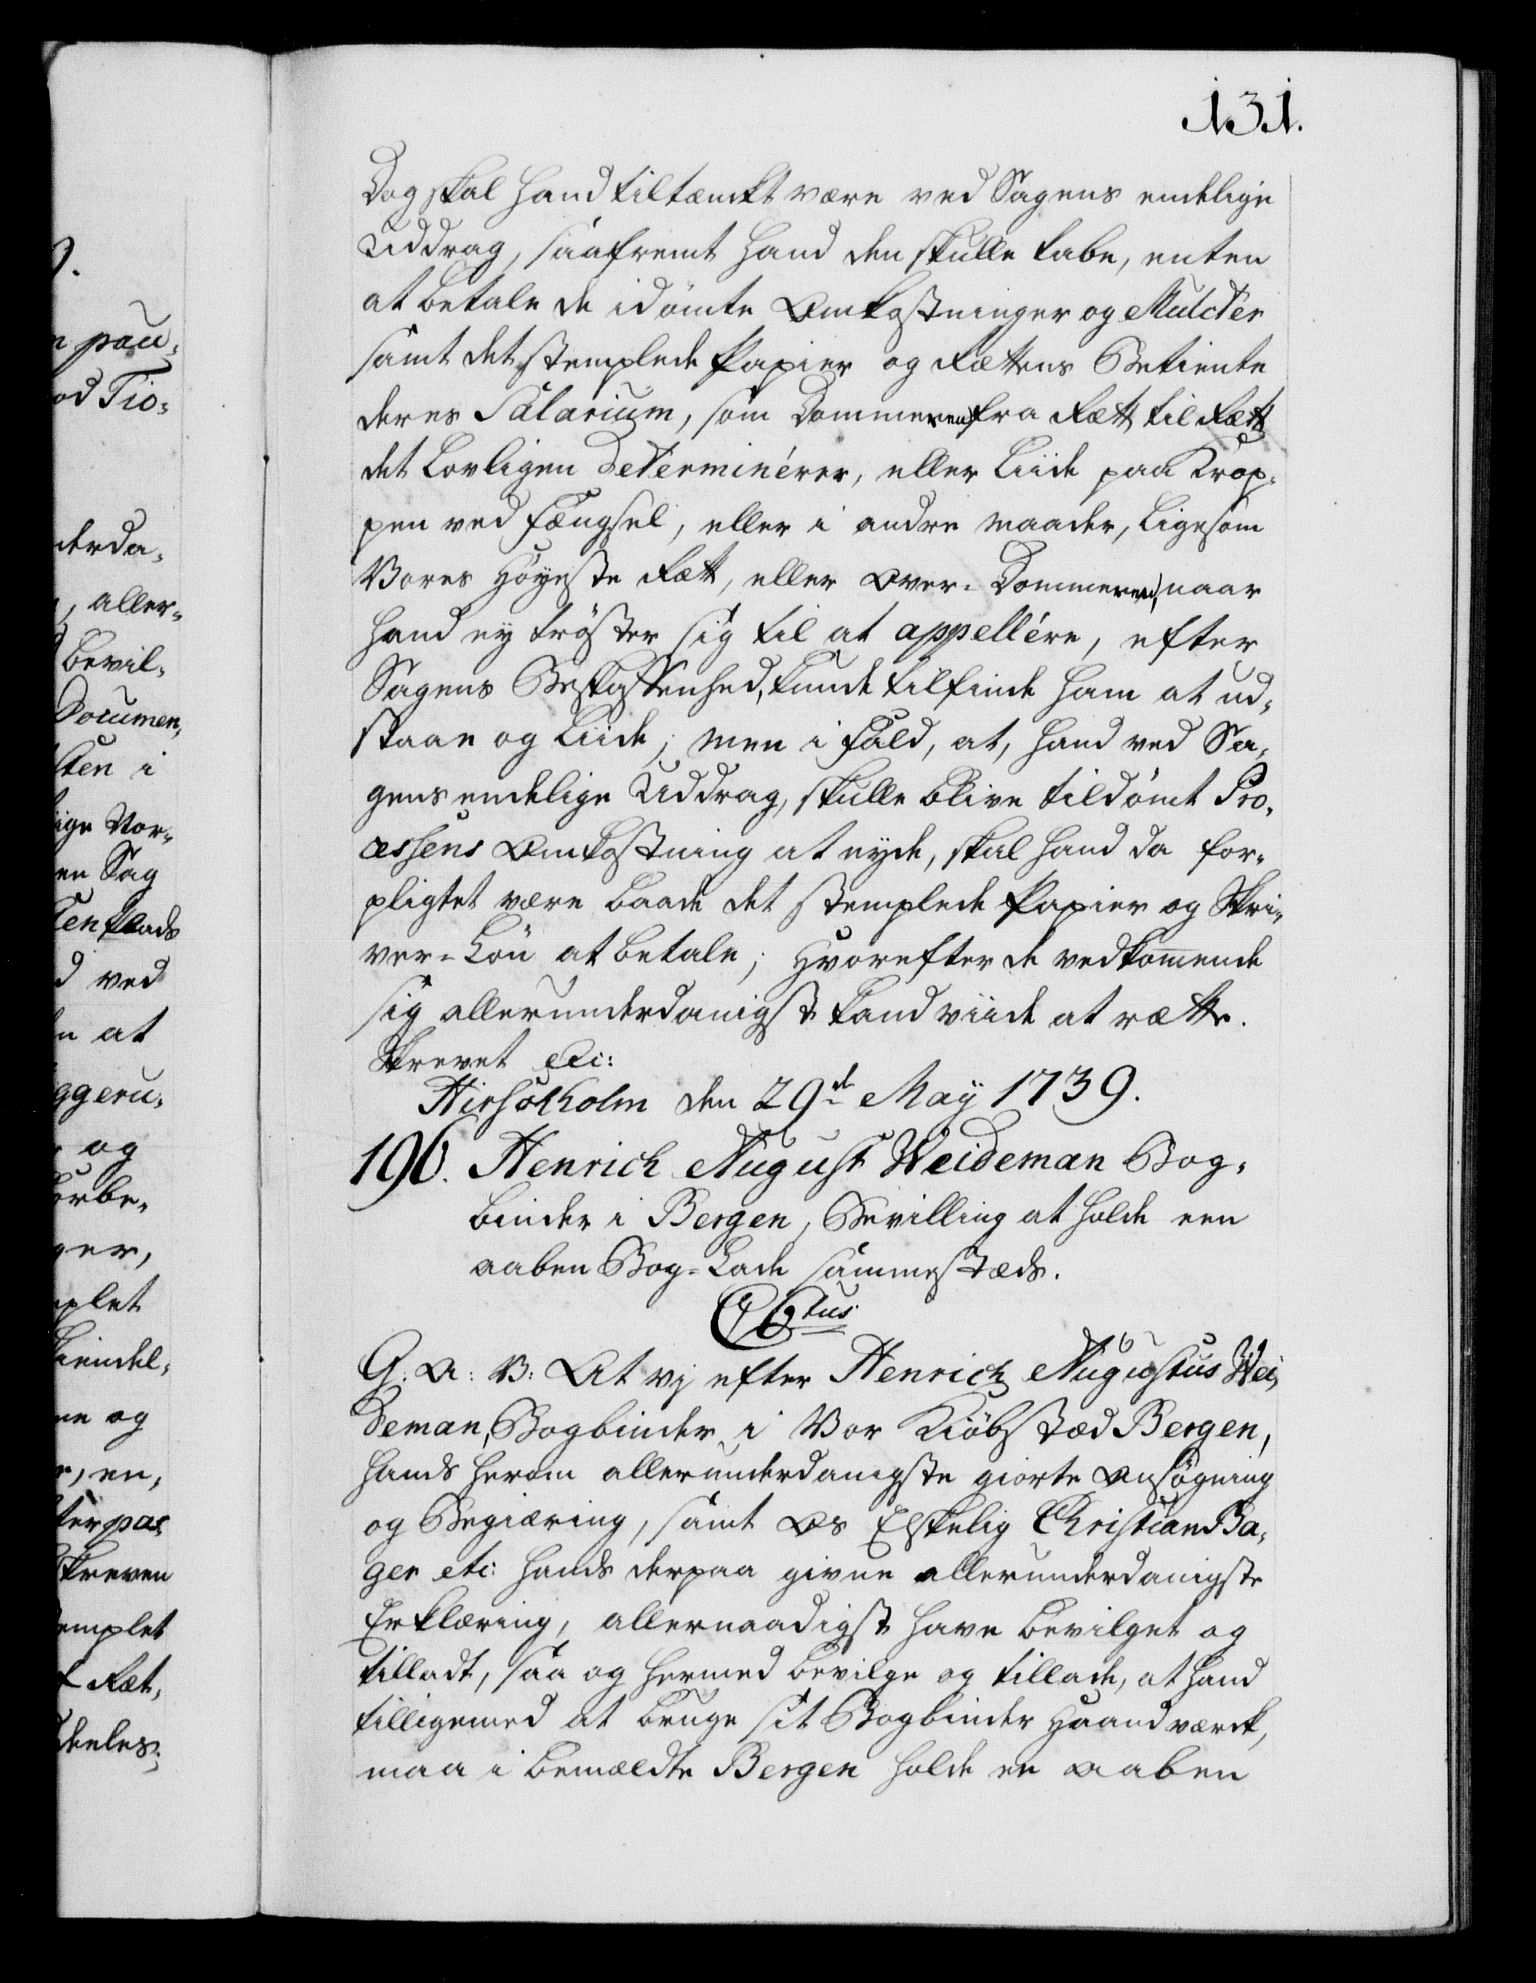 131.
Dog skal hand tiltænckt være ved Sagens endelige
Uddrag, saafremt hand den skulle tabe, enten
at betale de idömte Omkostninger og Mulcter
samt det stemplede Papier og Rættens Betiente
deres Salarium, som Dommeren fra Rætt til Rætt
det Lovligen determinérer, eller Liide paa Krop-
pen ved Fængsel, eller i andre maader, ligesom
Vores Höyeste Rætt, eller Over-Dommeren, naar
hand ey tröster sig til at appellére, efter
Sagens Beskaffenhed, kunde tilfinde ham at ud-
staae og Liide; men i fald, at, hand ved Sa-
gens endelige Uddrag, skulle blive tildömt Pro-
cessens Omkostning at nyde, skal hand da for-
pligtet være baade det stemplede Papier og Skri-
ver-Lön at betale; Hvorefter de vedkommende
sig allerunderdanigst kand viide at rætte.
Skrevet etc:
Hirsolholm den 29de May 1739.
196. Henrich August Weideman Bog-
binder i Bergen, Bevilling at holde een
aaben Bog-Lade sammestæds.
C 6tus
G: A: V: At vj efter Henrich Augustus Wei-
deman, Bogbinder i Vor Kiöbstæd Bergen,
hands herom allerunderdanigste giorte Ansögning
og Begiæring, samt Os Elskelig Christian Ba-
ger etc: hands derpaa givne allerunderdanigste
Erklæring, allernaadigst have bevilget og
tilladt, saa og hermed bevilge og tillade, at hand
tilligemed at bruge sit Bogbinder Haandværck,
maa i bemældte Bergen holde en aaben